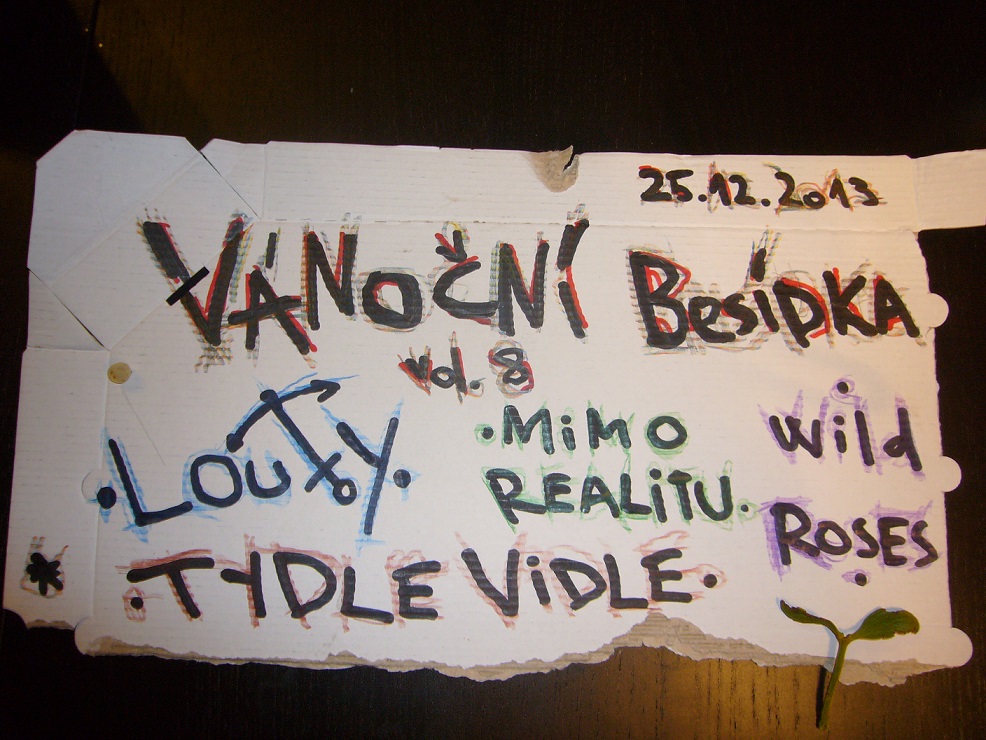 25.12.2013
VÁNočNí BesíDKA
vol. 8
• LOUTY •
• MiMO
REALiTU •
• Wild
ROSES •
• TYDLE ViDLE •
*